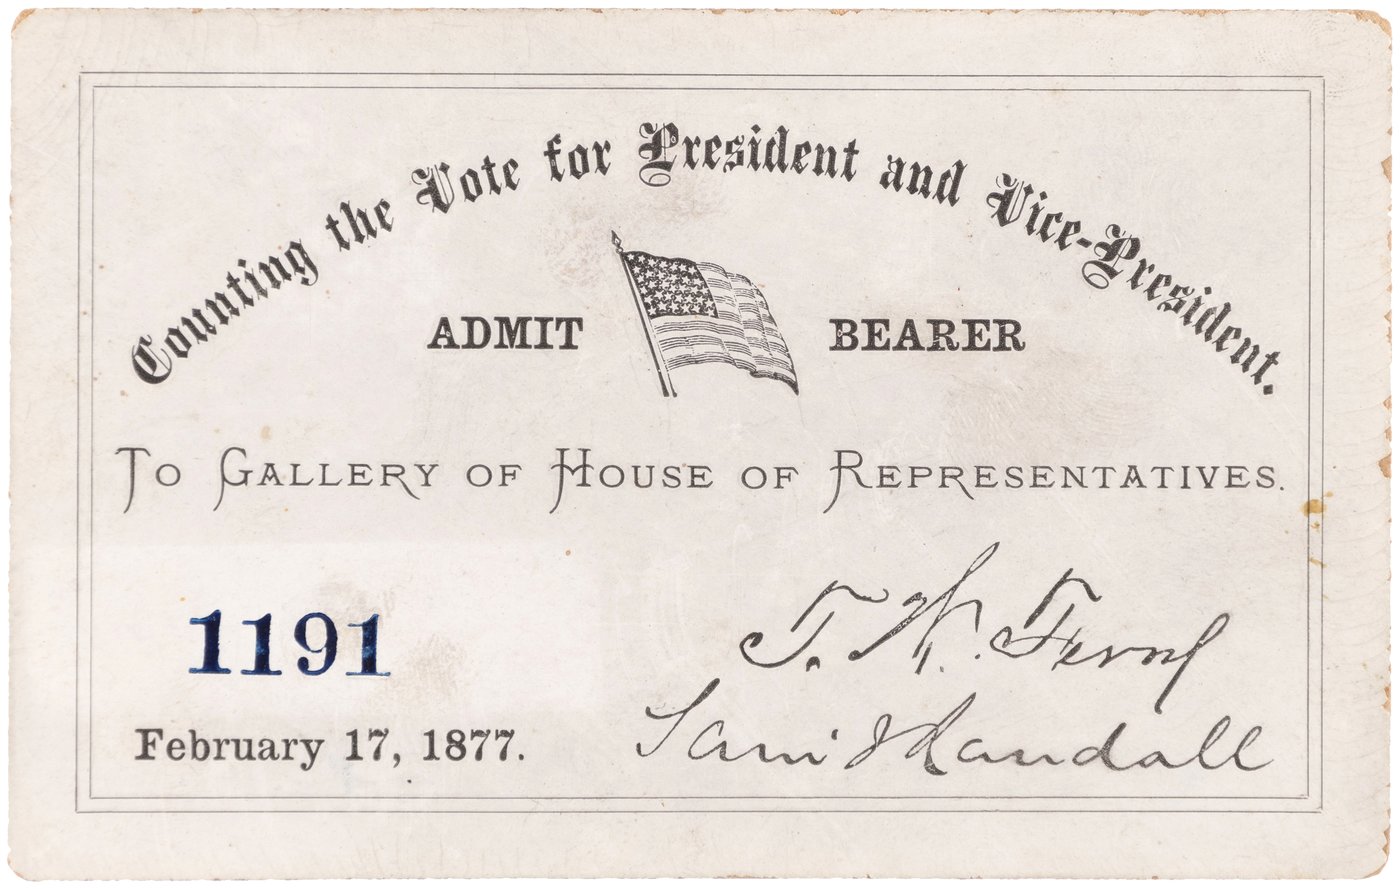 Counting the Vote for President and Vice-President.
ADMIT BEARER
TO GALLERY OF HOUSE OF REPRESENTATIVES.
1191
February 17, 1877.
T. W. Ferry
Sam J Randall